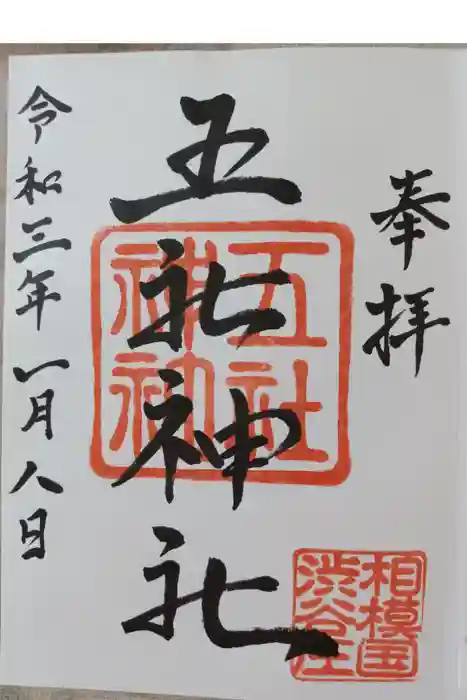 奉拝
五社神社
五社
神社
相模国
渋谷庄
令和三年一月八日